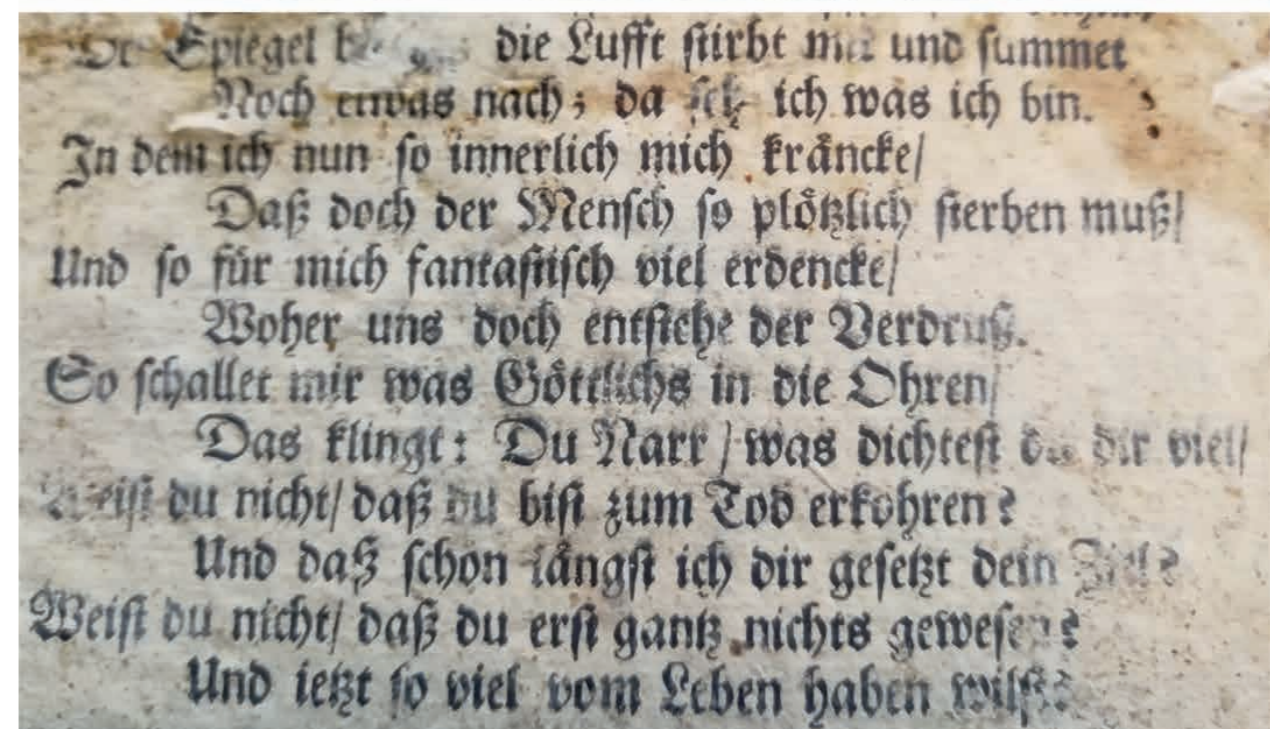 Spiegel die Lufft stirbt mit und summet
Noch etwas nach; da ich was ich bin.
In dem ich nun so innerlich mich kråncke/
Daß doch der Mensch so plötzlich sterben muß/
Und so für mich fantastisch viel erdencke/
Woher uns doch entstehe der Verdruß.
So schallet mir was Göttlichs in die Ohren/
Das klingt: Du Narr / was dichtest du dir viel/
Weist du nicht/ daß du bist zum Tod erkohren?
Und daß schon långst ich dir gesetzt dein Ziel?
Weist du nicht/ daß du erst gantz nichts gewesen?
Und ietzt so viel vom Leben haben wilst?